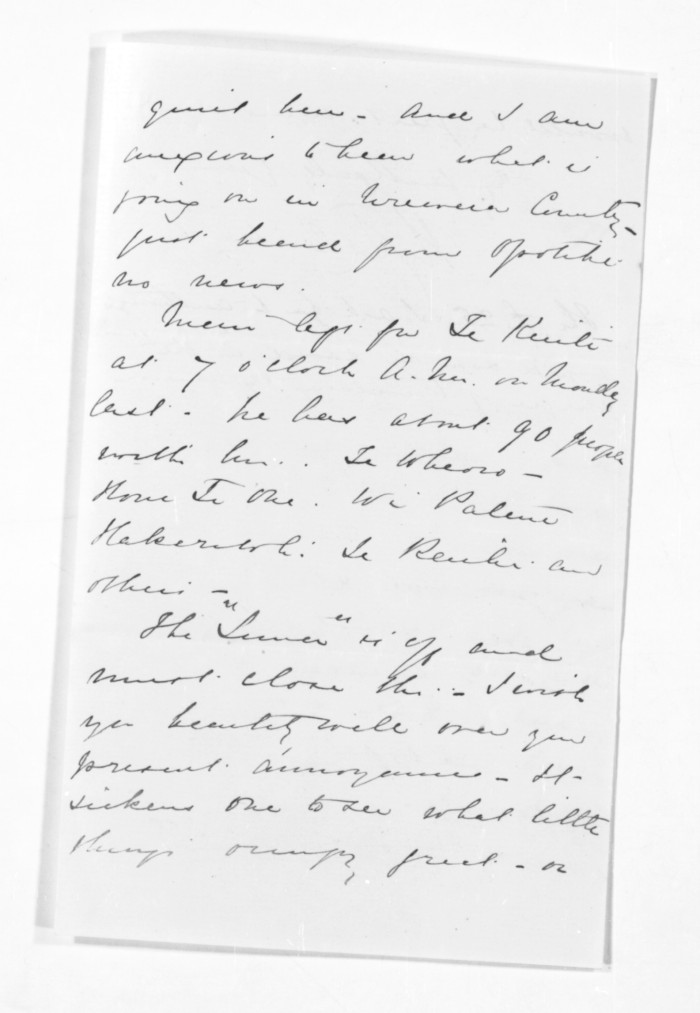 quiet here - and I am
anxious to hear what is
going on in Urewera Country -
just heard from Opotiki
no news.
Mair left for Te Kuiti
at 7 o'clock A.M. on Monday
last - he has about 90 people
with him. Te Wheoro -
Hone Te One. Wi Patene
Hakeriwhi. Te Reuihi and
others -
The "Luna" is off and
must close this - I wish
you heartily well over your
present annoyances - It
sickens one to see what little
things occupy great - or